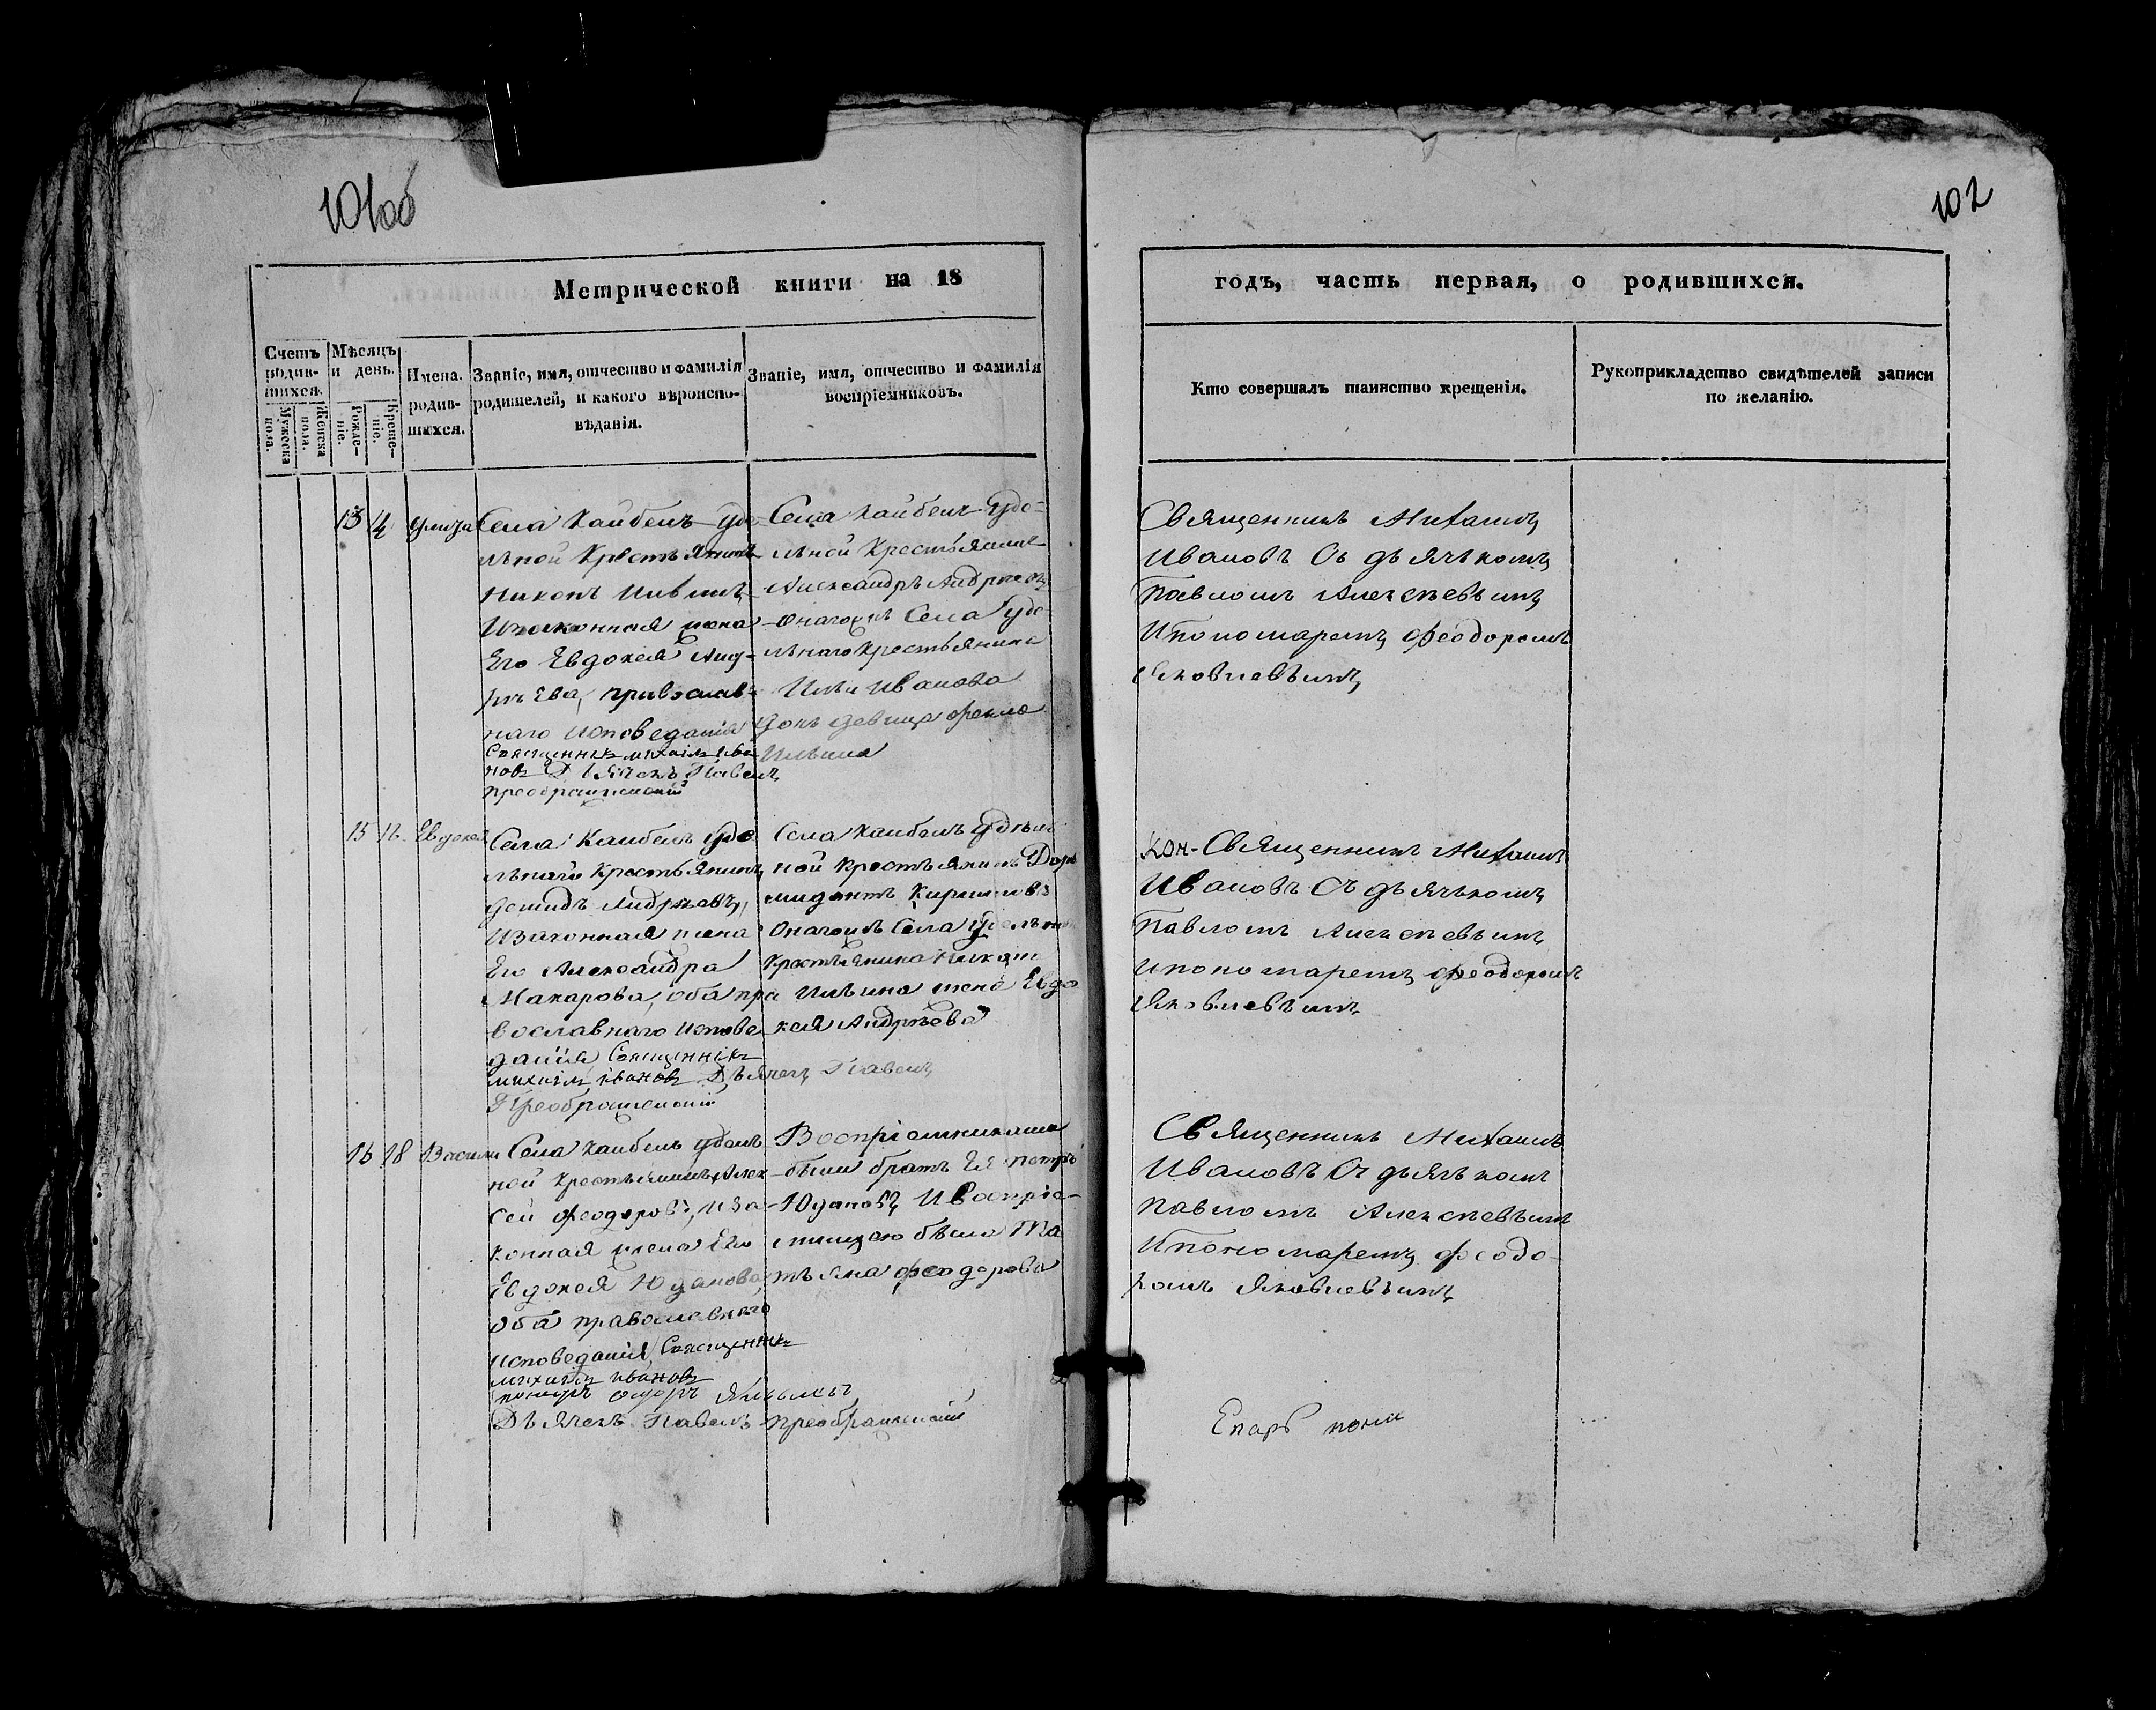 101об
102
Метрической книги на 18
годъ, часть первая, о родившихся.
Счетъ родив-шихся.
Мужеска пола.
Женска пола.
Мѣсяцъ и день.
Рожде-ніе.
Креще-ніе.
Имена родив-шихся.
Званіе, имя, отчество и фамилія
родителей, и какого вѣроиспо-
вѣданія.
Званіе, имя, отчество и фамилія
воспріемниковъ.
Кто совершалъ таинство крещенія.
Рукоприкладство свидѣтелей записи
по желанію.
13 14 Улита
Села Каибелъ уде
льной Крестьянинъ
Никонъ Ильинъ
Изаконная жена
Его Евдокея Анд-
рѣева, православ-
наго Исповеданія
Священникъ михаилъ Ива
новъ Дьячекъ Павелъ
Преображенскій
Села Каибелъ Уде-
льной Крестьянинъ
Александръ Андреевъ
Онагожъ Села Уде
льнаго Крестьянина
Ильи Иванова
дочь девица Фекла
Ильина
Священникъ Михаилъ
Ивановъ Съ дьячькомъ
Павломъ Алексѣевымъ
Ипономаремъ Феодоромъ
Яковлевымъ
15 17 Евдокея
Села Каибелъ уде
льнаго Крестьянинъ
Демидъ Андрѣевъ,
Изаконная жена
Его Александра
Макарова, оба пра
вославнаго Испове
данія Священникъ
михаилъ ивановъ Дьячекъ Павелъ
Преображенскій
Села Каибелъ Удѣль
ной Крестьянинъ Дор
мидонтъ Кириловъ
Онагожъ Села Удельна
Крестьянина Никон
Ильина жена Евдо
кея Андрѣева
Кон- Священникъ Михаилъ
Ивановъ Съ дьячькомъ
Павломъ Алексѣевымъ
Ипономаремъ Феодоромъ
Яковлевымъ
16 18 Васили
Села Каибелъ удель
ной Крестьянинъ Алек
сей Феодоровъ, Иза
конная жена Его
Евдокея Юданова,
оба православнаго
исповеданія, Священникъ
михаилъ ивановъ
Дьячекъ Павелъ Преображенскій
Воспріемниками
были братъ Ея Петръ
Юдановъ Иваспріе-
мницею была Та
тьяна Феодорова
Священникъ Михаилъ
Ивановъ Съ дьячькомъ
Павломъ Алексѣевымъ
Ипономаремъ Феодо-
ромъ Яковлевымъ